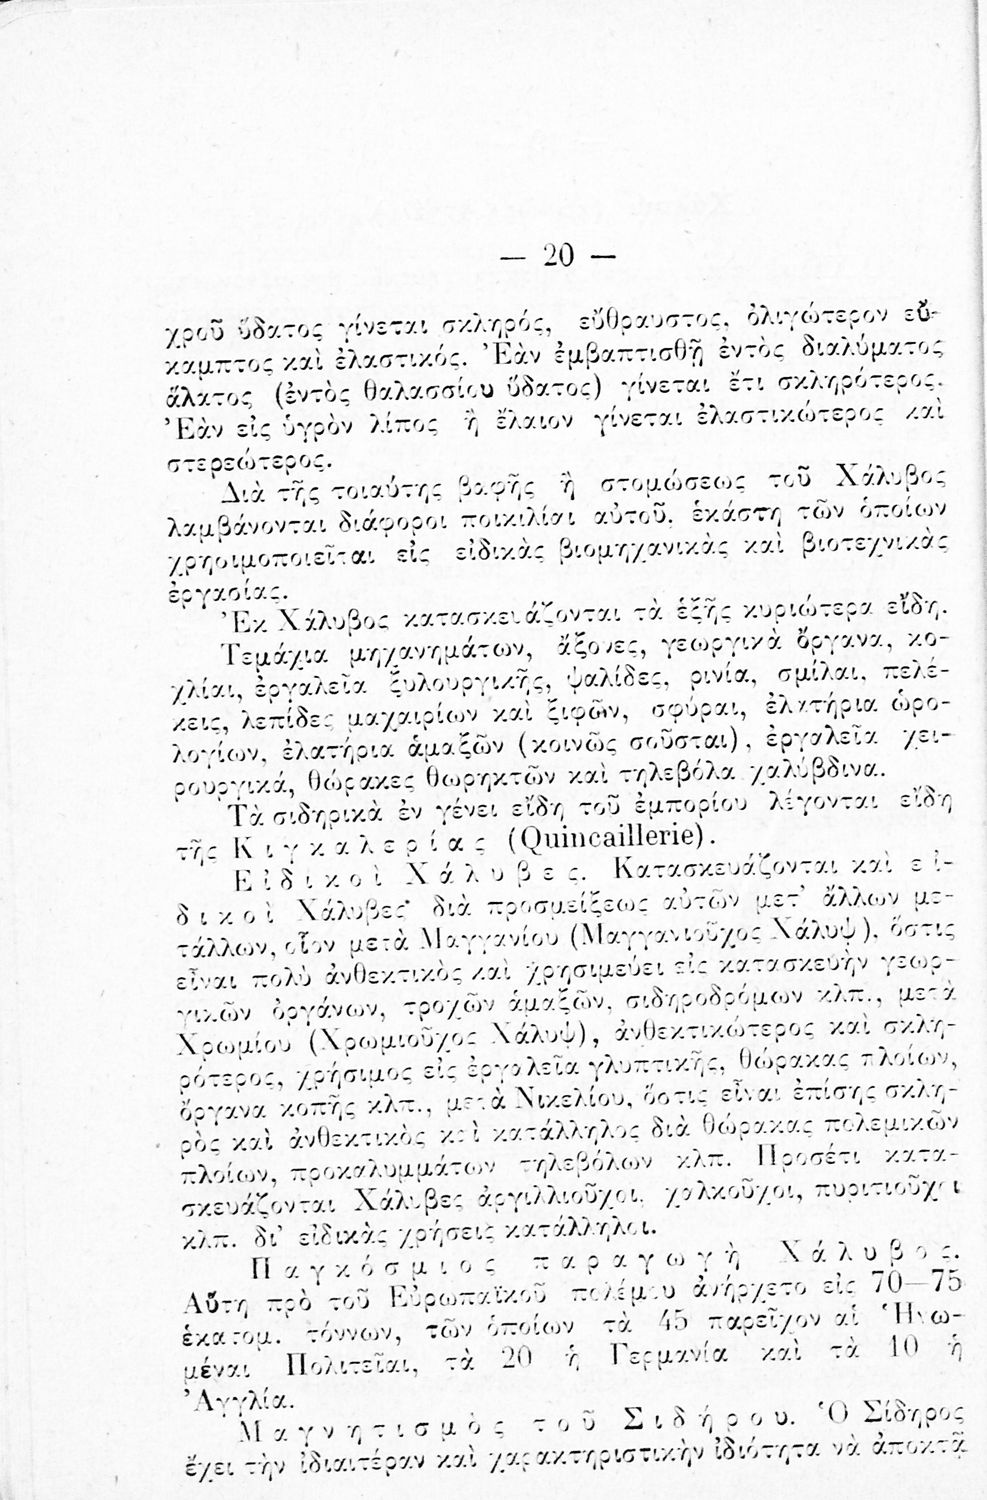 — 20 —
χροῦ ὕδατος γίνεται σκληρός, εὔθραυστος, ὀλιγώτερον εὔ-
καμπτος καὶ ἐλαστικός. Ἐὰν ἐμβαπτισθῇ ἐντὸς διαλύματος
ἅλατος (ἐντὸς θαλασσίου ὕδατος) γίνεται ἔτι σκληρότερος.
Ἐὰν εἰς ὑγρὸν λίπος ἢ ἔλαιον γίνεται ἐλαστικώτερος καὶ
στερεώτερος.
Διὰ τῆς τοιαύτης βαφῆς ἢ στομώσεως τοῦ Χάλυβος
λαμβάνονται διάφοροι ποικιλίαι αὐτοῦ, ἑκάστη τῶν ὁποίων
χρησιμοποιεῖται εἰς εἰδικὰς βιομηχανικὰς καὶ βιοτεχνικὰς
ἐργασίας.
Ἐκ Χάλυβος κατασκευάζονται τὰ ἑξῆς κυριώτερα εἴδη.
Τεμάχια μηχανημάτων, ἄξονες, γεωργικὰ ὄργανα, κο-
χλίαι, ἐργαλεῖα ξυλουργικῆς, ψαλίδες, ρινία, σμίλαι, πελέ-
κεις, λεπίδες μαχαιρίων καὶ ξιφῶν, σφύραι, ἐλατήρια ὡρο-
λογίων, ἐλατήρια ἁμαξῶν (κοινῶς σοῦσται), ἐργαλεῖα χει-
ρουργικά, θώρακες θωρηκτῶν καὶ τηλεβόλα χαλύβδινα.
Τὰ σιδηρικὰ ἐν γένει εἴδη τοῦ ἐμπορίου λέγονται εἴδη
τῆς Κιγκαλερίας (Quincaillerie).
Εἰδικοὶ Χάλυβες. Κατασκευάζονται καὶ εἰ-
δικοὶ Χάλυβες· διὰ προσμείξεως αὐτῶν μετ' ἄλλων με-
τάλλων, οἷον μετὰ Μαγγανίου (Μαγγανιοῦχος Χάλυψ), ὅστις
εἶναι πολὺ ἀνθεκτικὸς καὶ χρησιμεύει εἰς κατασκευὴν γεωρ-
γικῶν ὀργάνων, τροχῶν ἁμαξῶν, σιδηροδρόμων κλπ., μετὰ
Χρωμίου (Χρωμιοῦχος Χάλυψ), ἀνθεκτικώτερος καὶ σκλη-
ρότερος, χρήσιμος εἰς ἐργαλεῖα γλυπτικῆς, θώρακας πλοίων,
ὄργανα κοπῆς κλπ., μετὰ Νικελίου, ὅστις εἶναι ἐπίσης σκλη-
ρὸς καὶ ἀνθεκτικὸς καὶ κατάλληλος διὰ θώρακας πολεμικῶν
πλοίων, προκαλυμμάτων τηλεβόλων κλπ. Προσέτι κατα-
σκευάζονται Χάλυβες ἀργιλλιοῦχοι, χαλκοῦχοι, πυριτιοῦχοι
κλπ. δι' εἰδικὰς χρήσεις κατάλληλοι.
Παγκόσμιος παραγωγὴ Χάλυβος.
Αὕτη πρὸ τοῦ Εὐρωπαϊκοῦ πολέμου ἀνήρχετο εἰς 70—75
ἑκατομ. τόννων, τῶν ὁποίων τὰ 45 παρεῖχον αἱ Ἡνω-
μέναι Πολιτεῖαι, τὰ 20 ἡ Γερμανία καὶ τὰ 10 ἡ
Ἀγγλία.
Μαγνητισμὸς τοῦ Σιδήρου. Ὁ Σίδηρος
ἔχει τὴν ἰδιαιτέραν καὶ χαρακτηριστικὴν ἰδιότητα νὰ ἀποκτᾷ